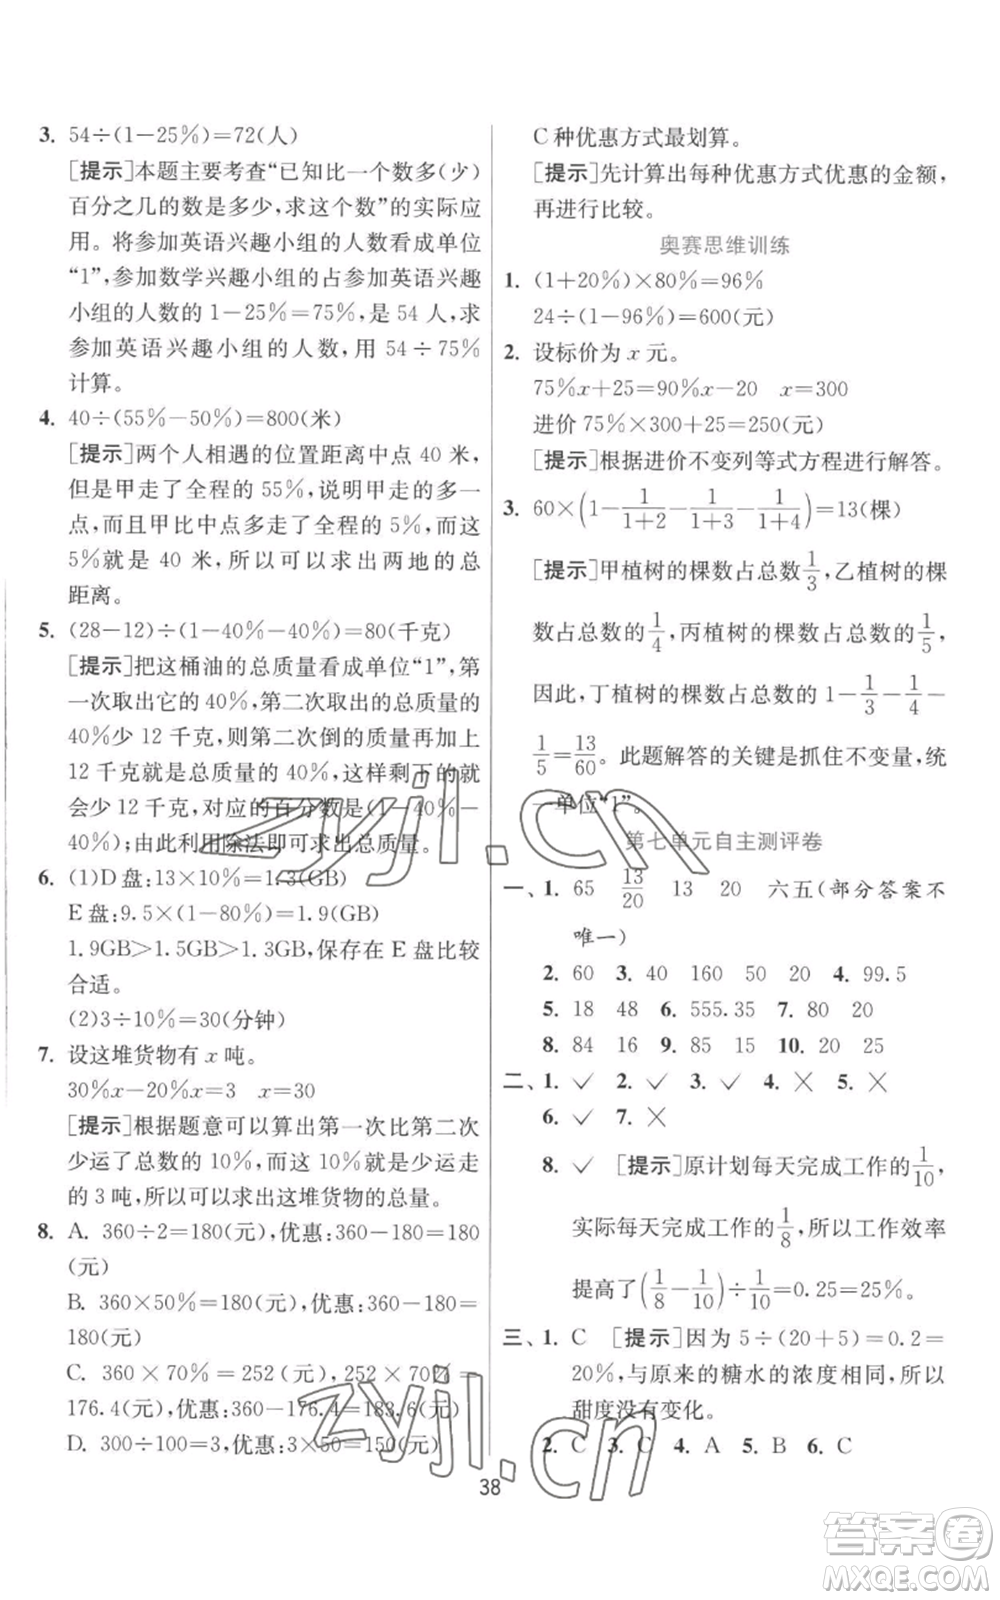 3. 54÷(1－25%)＝72(人)
[提示]本题主要考查“已知比一个数多(少)
百分之几的数是多少,求这个数”的实际应
用。将参加英语兴趣小组的人数看成单位
“1”,参加数学兴趣小组的占参加英语兴趣
小组的人数的 1－25%＝75%,是 54 人,求
参加英语兴趣小组的人数,用 54÷75%
计算。
4. 40÷(55%－50%)＝800(米)
[提示]两个人相遇的位置距离中点 40 米,
但是甲走了全程的 55%,说明甲走的多一
点,而且甲比中点多走了全程的 5%,而这
5%就是 40 米,所以可以求出两地的总
距离。
5. (28－12)÷(1－40%－40%)＝80(千克)
[提示]把这桶油的总质量看成单位“1”,第
一次取出它的 40%,第二次取出的总质量的
40%少 12 千克,则第二次倒的质量再加上
12 千克就是总质量的 40%,这样剩下的就
会少 12 千克,对应的百分数是(1－40%－
40%),由此利用除法即可求出总质量。
6. (1)D 盘:13×10%＝1.3(GB)
E 盘:9.5×(1－80%)＝1.9(GB)
1.9GB＞1.5GB＞1.3GB,保存在 E 盘比较
合适。
(2)3÷10%＝30(分钟)
7. 设这堆货物有 x 吨。
30%x－20%x＝3 x＝30
[提示]根据题意可以算出第一次比第二次
少运了总数的 10%,而这 10%就是少运走
的 3 吨,所以可以求出这堆货物的总量。
8. A. 360÷2＝180(元),优惠:360－180＝180
(元)
B. 360×50%＝180(元),优惠:360－180＝
180(元)
C. 360×70%＝252(元),252×70%＝
176.4(元),优惠:360－176.4＝183.6(元)
D. 300÷100＝3,优惠:3×50＝150(元)
C 种优惠方式最划算。
[提示]先计算出每种优惠方式优惠的金额,
再进行比较。
奥赛思维训练
1. (1＋20%)×80%＝96%
24÷(1－96%)＝600(元)
2. 设标价为 x 元。
75%x＋25＝90%x－20 x＝300
进价 75%×300＋25＝250(元)
[提示]根据进价不变列等式方程进行解答。
3. 60×(1－1/(1+2)－1/(1+3)－1/(1+4))＝13(棵)
[提示]甲植树的棵数占总数1/3,乙植树的棵
数占总数的1/4,丙植树的棵数占总数的1/5,
因此,丁植树的棵数占总数的 1－1/3－1/4－
1/5＝13/60。此题解答的关键是抓住不变量,统
一单位“1”。
第七单元自主测评卷
一、1. 65 13/20 13 20 六五(部分答案不
唯一)
2. 60 3. 40 160 50 20 4. 99.5
5. 18 48 6. 555.35 7. 80 20
8. 84 16 9. 85 15 10. 20 25
二、1. ✓ 2. ✓ 3. ✓ 4. × 5. ×
6. ✓ 7. ×
8. ✓ [提示]原计划每天完成工作的1/10,
实际每天完成工作的1/8,所以工作效率
提高了(1/8－1/10)÷1/10＝0.25＝25%。
三、1. C [提示]因为 5÷(20＋5)＝0.2＝
20%,与原来的糖水的浓度相同,所以
甜度没有变化。
2. C 3. C 4. A 5. B 6. C
38
zyjl.cn
zyjl.cn
答案卷
MXQE.COM